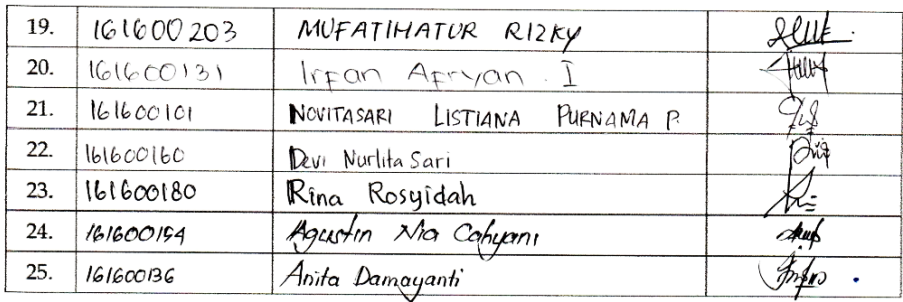 19. 161600203 MUFATIHATUR RIZKY
20. 161600131 Irfan Afryan . I
21. 161600101 NOVITASARI LISTIANA PURNAMA P.
22. 161600160 Devi Nurlita Sari
23. 161600180 Rina Rosyidah
24. 161600194 Agustin Nia Cahyani
25. 161600136 Anita Damayanti